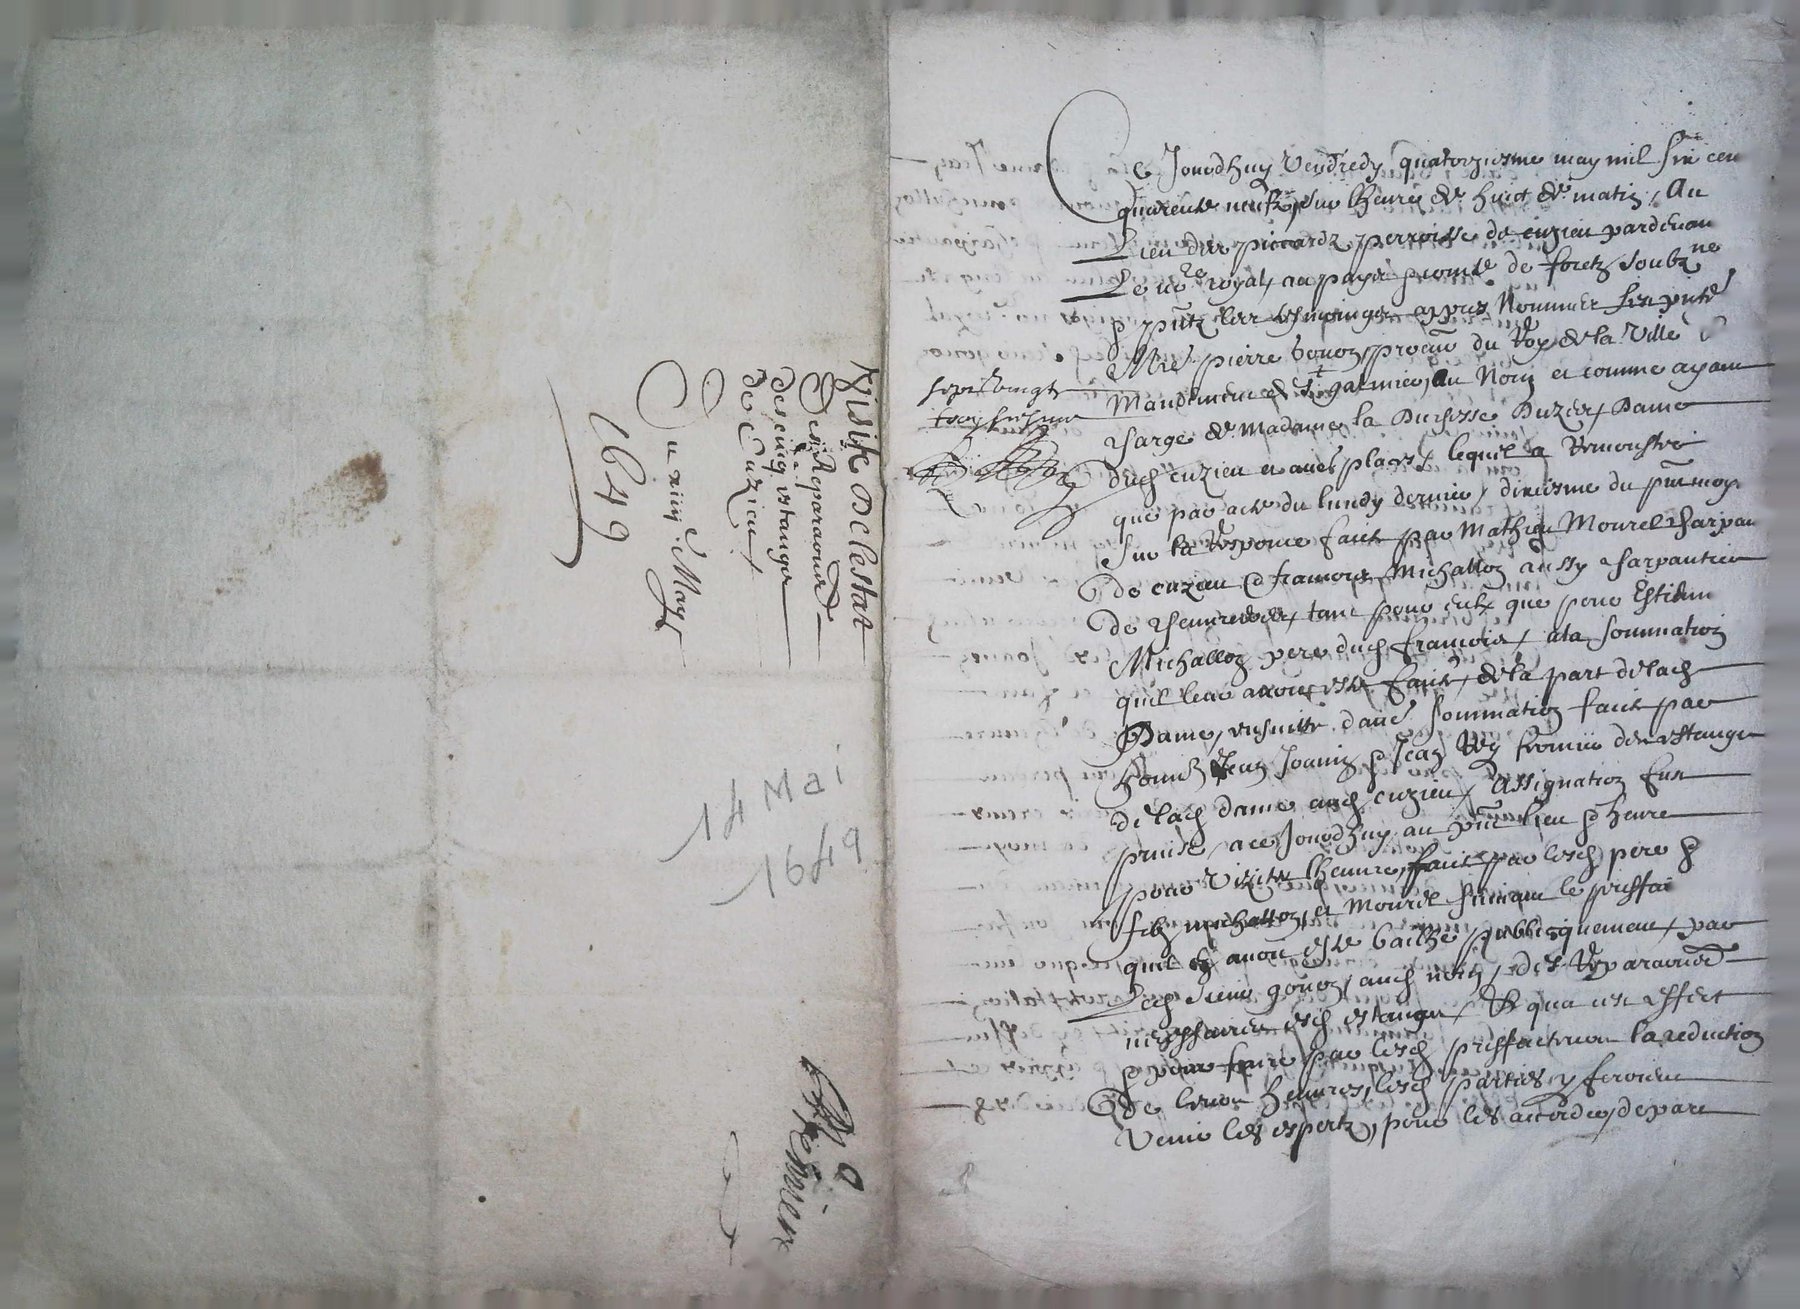 Visite de lestat
Des Reparaons
des cinq estangs
de Cuzieu
Du xiiij.e May
1649
14 Mai
1649
Ce Jourdhuy Vendredy quatorziesme may mil six cen
quarente neufz sur lheure de huict de matin, Au
Lieu des piccardz perroisse de cuzieu pardevan
Le no.re royal, au pays & comté de foretz soubz.ne
& p{nt}z les tesmoings apres Nommes
M.re pierre procu du Roy de la Ville &
Mandement de S.t galmier, au Nom et comme ayant
charge de Madame la Duchesse Duzes, Dame
dud cuzieu et aues places, lequel a Remonstré
que par acte du lundy dernier, dixiesme du p{nt} moys
sur la Responce faict par Mathieu Mourel charpan
de cuzieu & francois Michallon aussy charpantier
de tant pour eulx que pour Estienne
Michallon pere dud francois, a la sommation
quil leur auoit este faict, de la part de lad
Dame, ensuitte daue sommation faict par
Jean & Jean Rey fermier des estangs
de lad dame aud cuzieu, Assignation fust
prinse, a ce Jourdhuy au p{nt} lieu & heure
pour Viziter lheuure faict par lesd pere &
filz michallon, et Mourel suivant le prisfai
quil en auoit este bailhé publicquement, par
Led sieur gonon, aud nom, des Reparaons
necessaires esd estangs, Et qua cest effect
& pour faire par lesd prisfacteurs la reduction
de leurs heuures, lesd parties y feroient
Venir les espertz, pour les accorder, de part
sept vingt